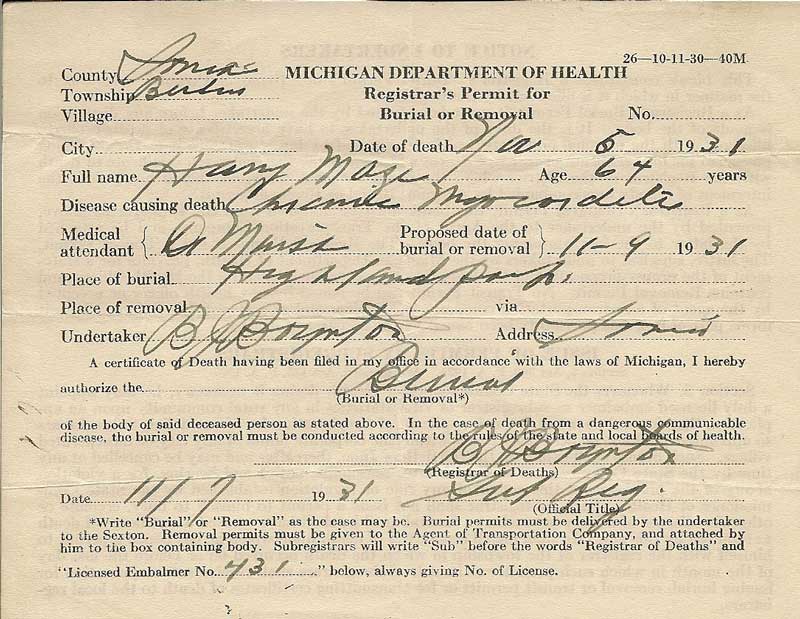 26—10-11-30—40M
County Ionia
MICHIGAN DEPARTMENT OF HEALTH
Township Berlin
Registrar's Permit for
Village
Burial or Removal No.
City Date of death Nov 5 1931
Full name Harry Maze Age 64 years
Disease causing death Chronic Myocarditis
Medical attendant { Dr Proposed date of burial or removal } 11-9 1931
Place of burial Highland Park
Place of removal via
Undertaker B J Boynton Address Ionia
A certificate of Death having been filed in my office in accordance with the laws of Michigan, I hereby
authorize the Burial
(Burial or Removal*)
of the body of said deceased person as stated above. In the case of death from a dangerous communicable
disease, the burial or removal must be conducted according to the rules of the state and local boards of health.
B J Boynton
(Registrar of Deaths)
Date 11/7 1931 Sub Reg.
(Official Title)
*Write "Burial" or "Removal" as the case may be. Burial permits must be delivered by the undertaker
to the Sexton. Removal permits must be given to the Agent of Transportation Company, and attached by
him to the box containing body. Subregistrars will write "Sub" before the words "Registrar of Deaths" and
"Licensed Embalmer No. 431 " below, always giving No. of License.